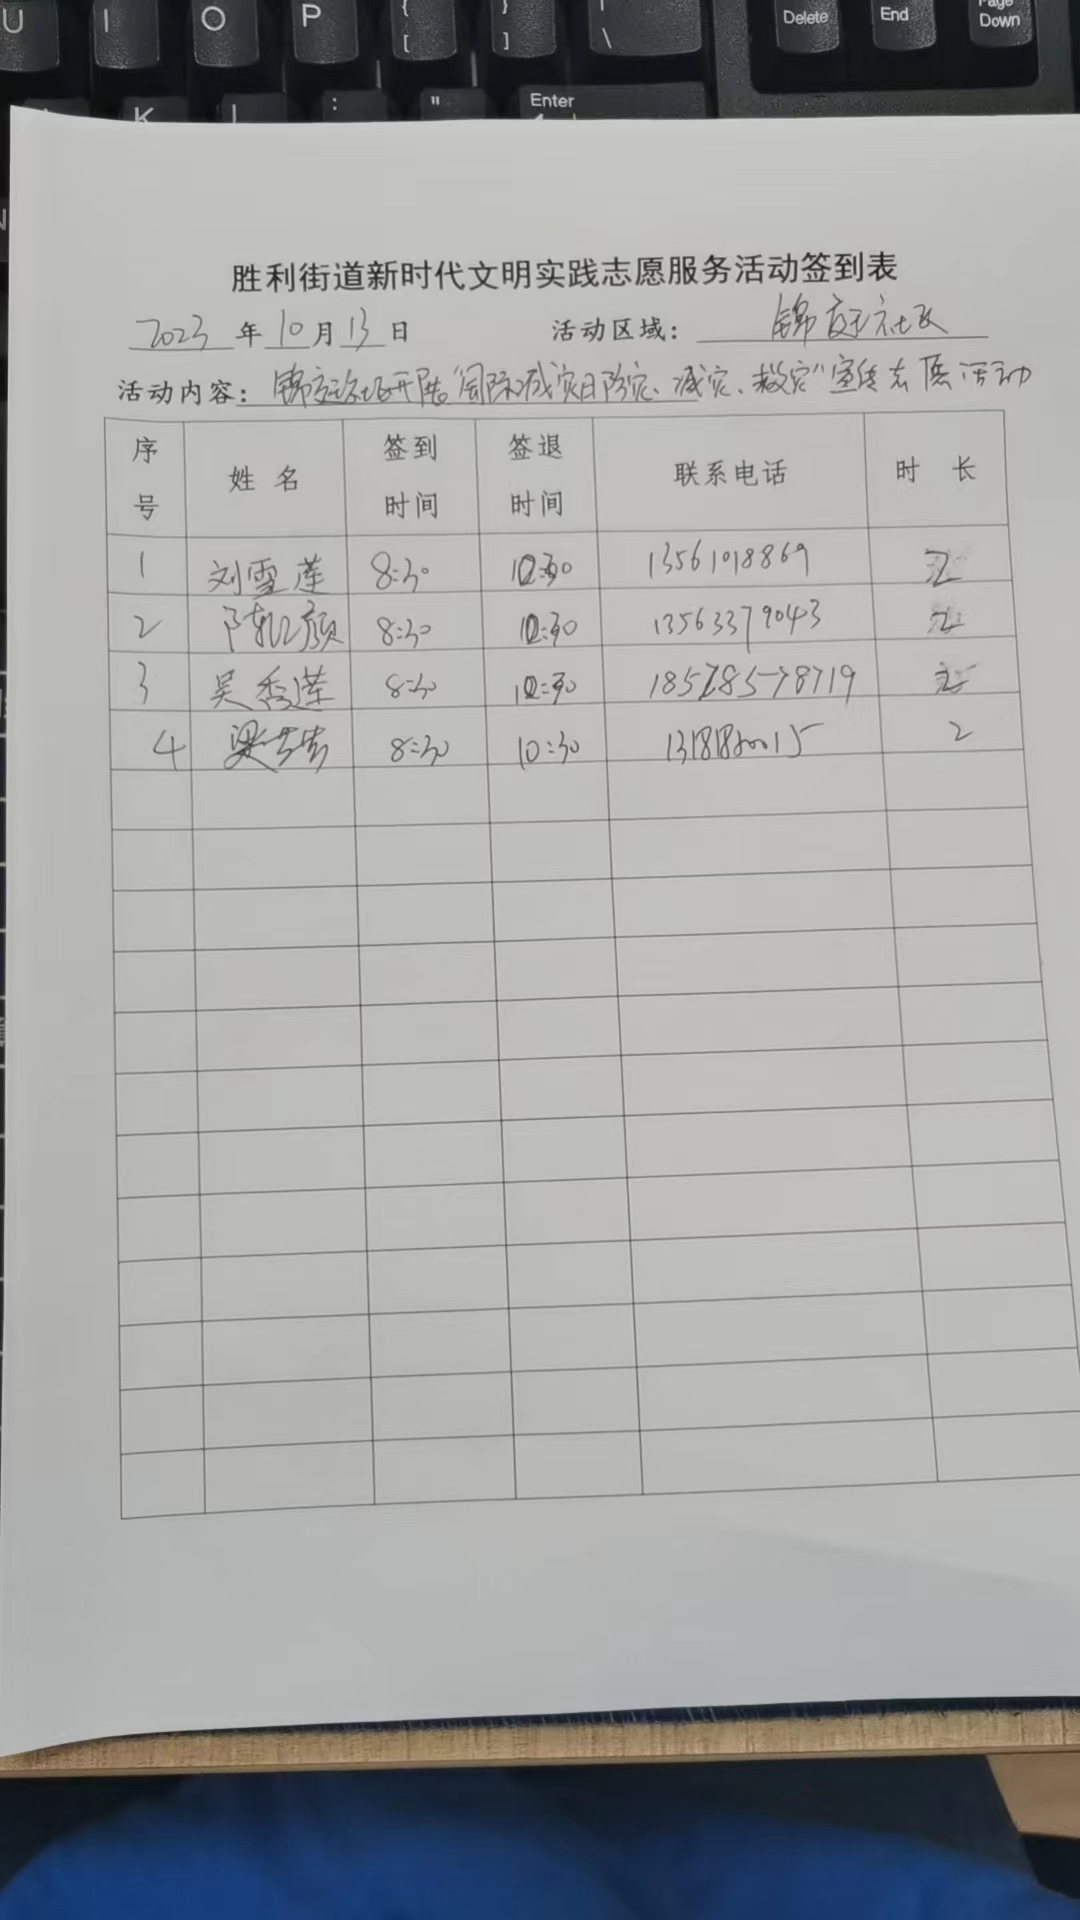 U I O P { [ } ] | \ Delete End Page Down
K L : " Enter
胜利街道新时代文明实践志愿服务活动签到表
2023 年 10 月 13 日 活动区域: 锦庭社区
活动内容: 锦庭社区开展"国际减灾日防灾、减灾、救灾"宣传志愿活动
序号 姓名 签到时间 签退时间 联系电话 时长
1 刘雪莲 8:30 10:30 13561018869 2
2 陈 颜 8:30 10:30 13563379043 2
3 吴秀莲 8:30 10:30 2
4 梁 8:30 10:30 2